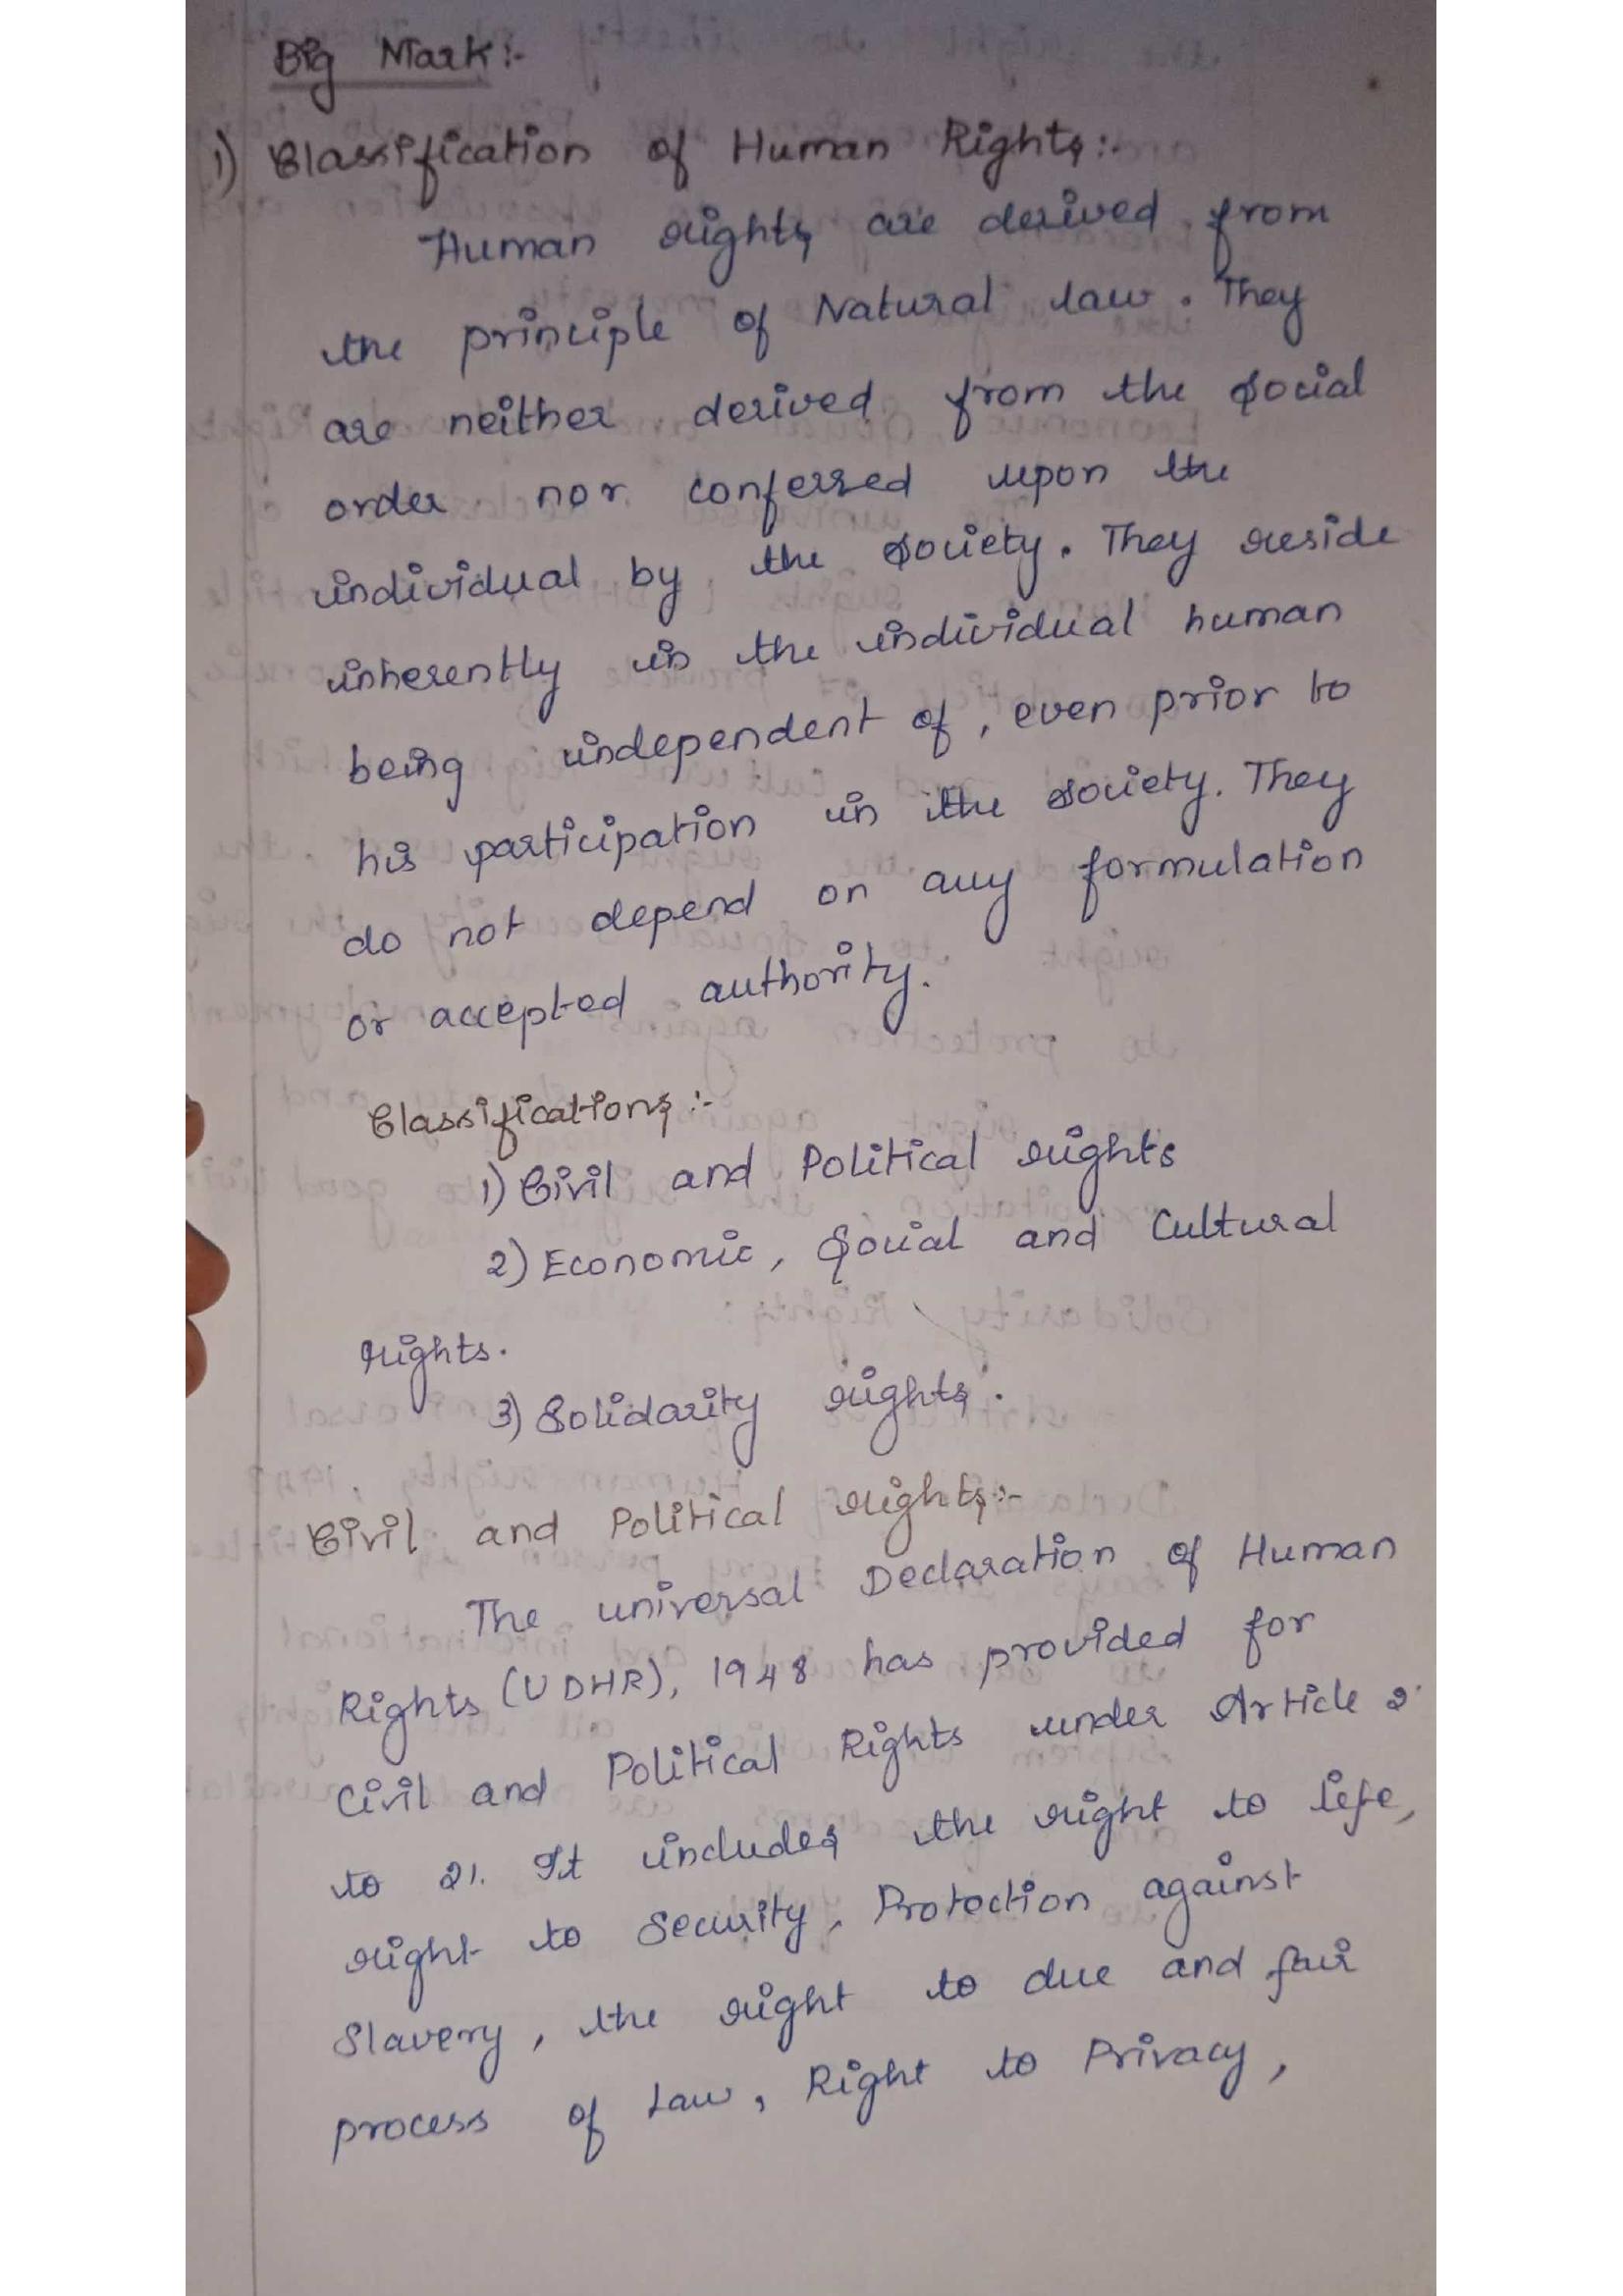 Big Mark:-
1) Classification of Human Rights:-
Human rights are derived from
the principle of Natural law. They
are neither derived from the social
order nor conferred upon the
individual by the society. They reside
inherently in the individual human
being independent of, even prior to
his participation in the society. They
do not depend on any formulation
or accepted authority.
Classifications:-
1) Civil and Political rights
2) Economic, Social and Cultural
rights.
3) Solidarity rights.
Civil and Political rights:-
The universal Declaration of Human
Rights (UDHR), 1948 has provided for
Civil and Political Rights under Article 2
to 21. It includes the right to life,
right to Security, Protection against
Slavery, the right to due and fair
process of Law, Right to Privacy,